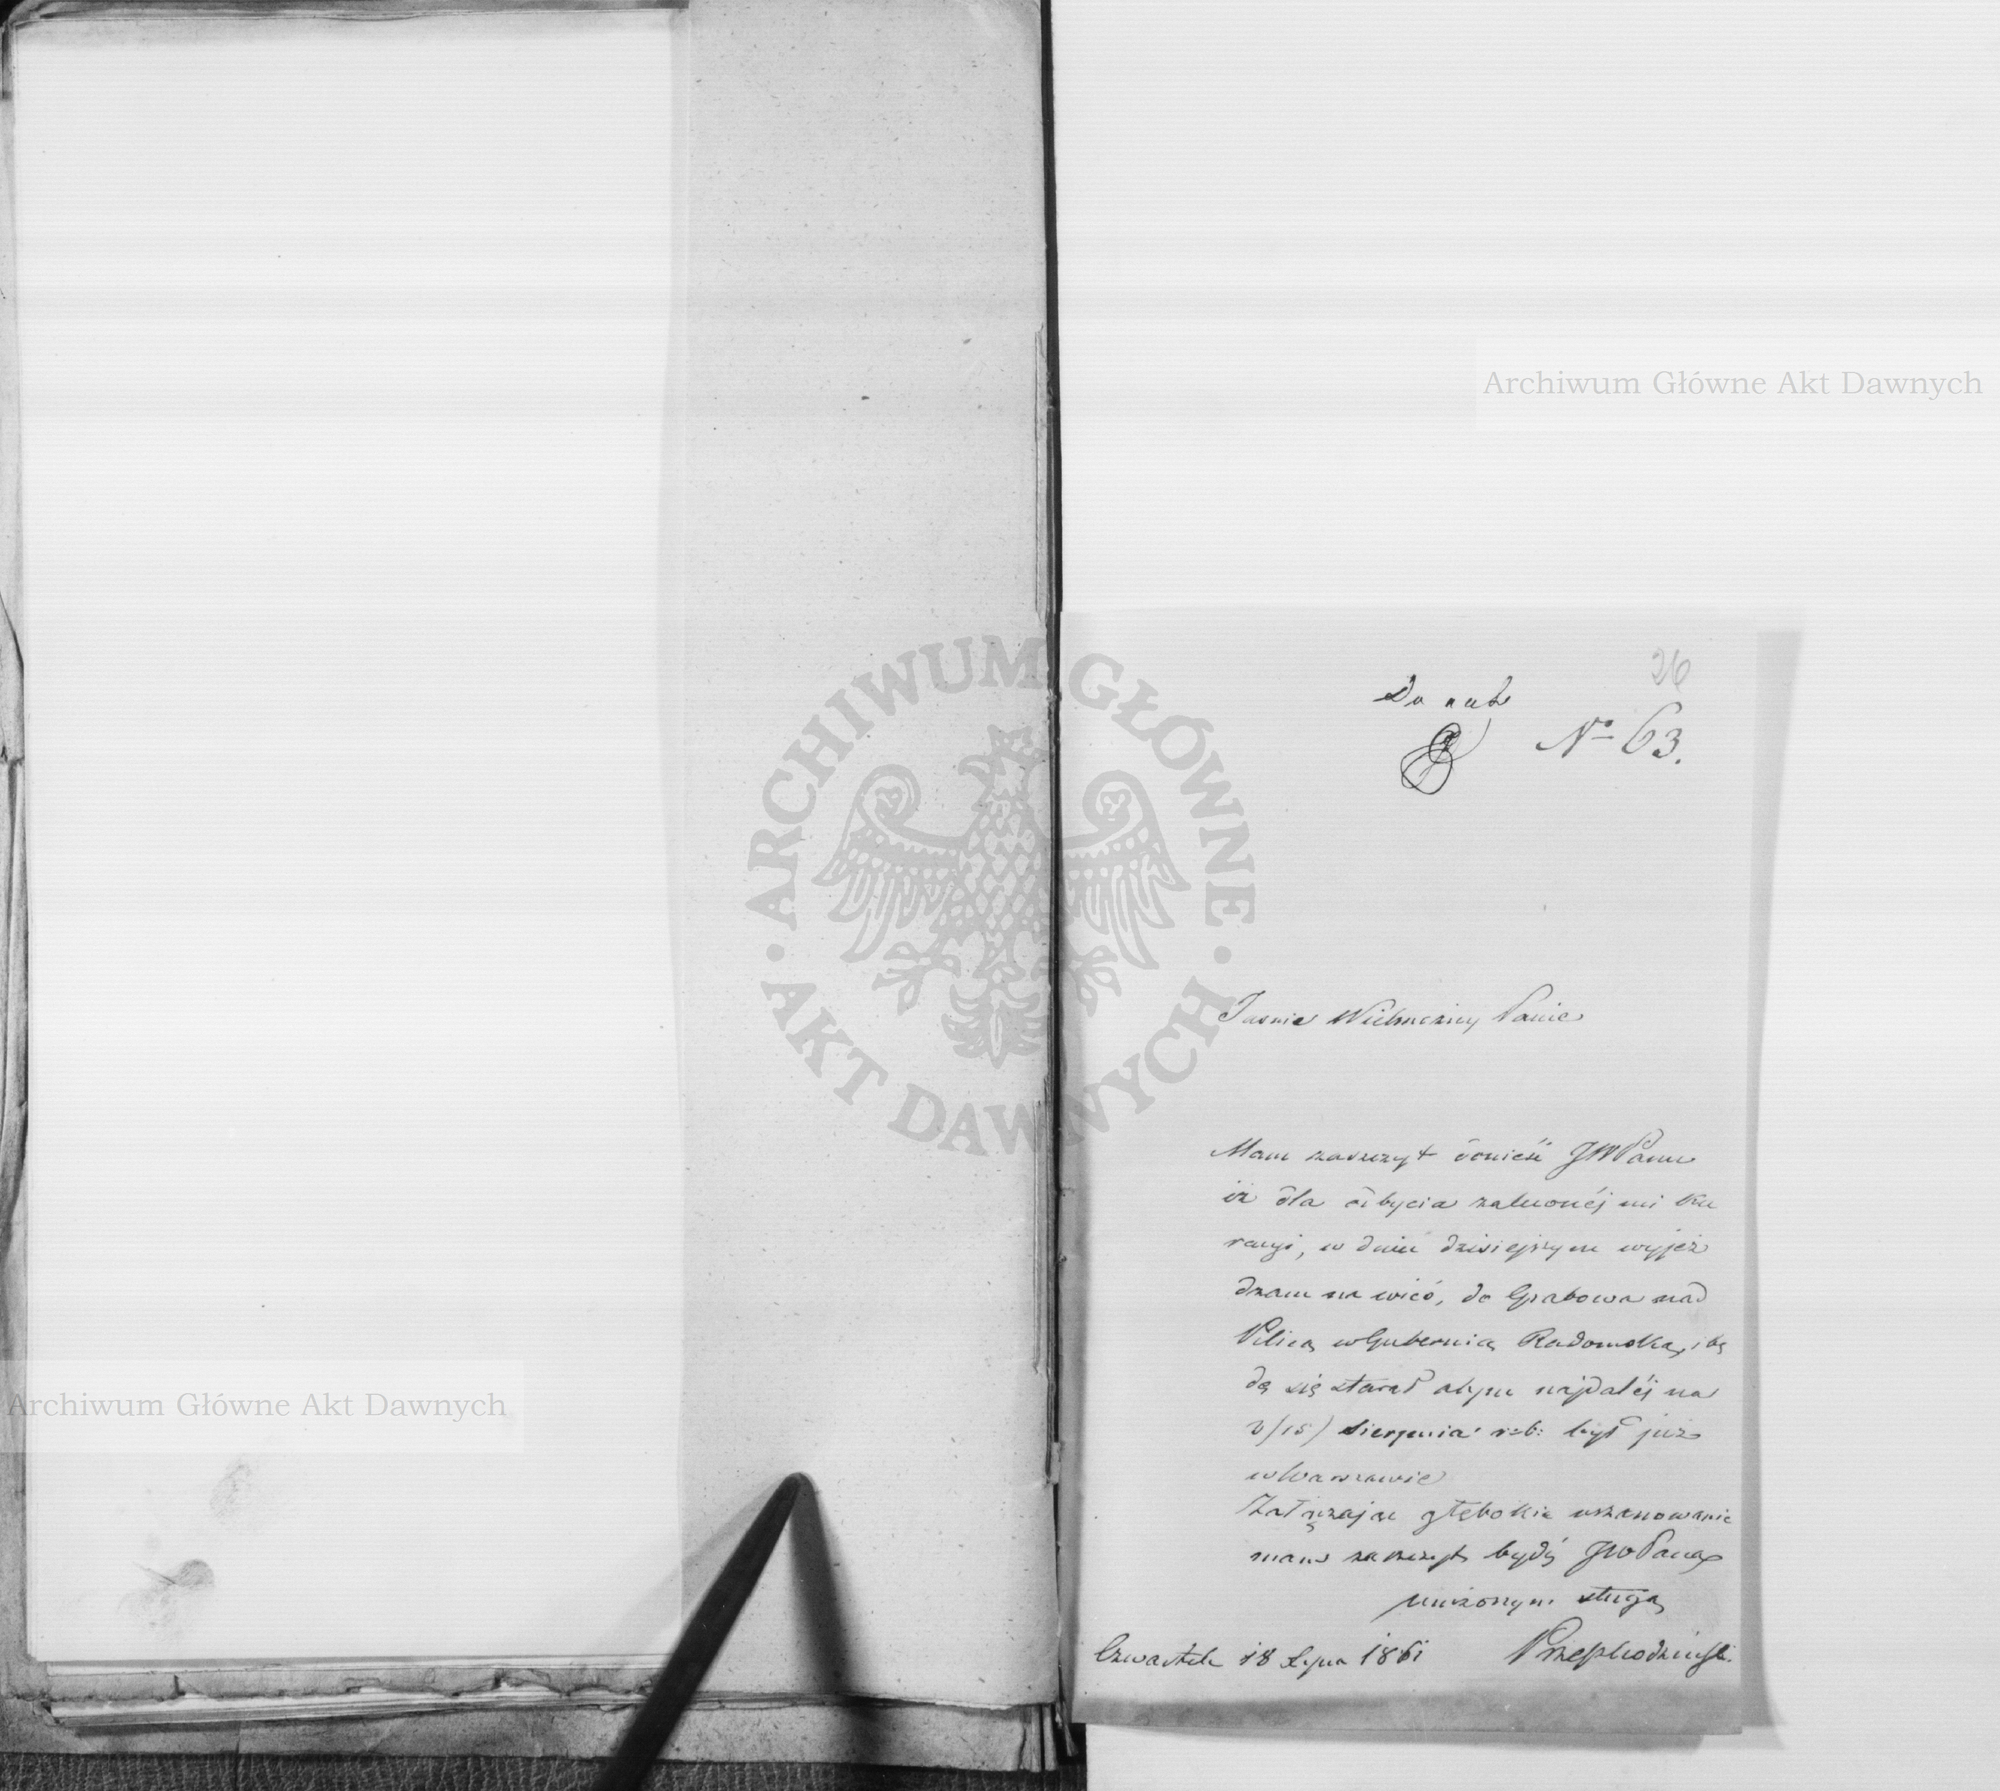 26
Do akt
No 63.
Jaśnie Wielmożny Panie
Mam zaszczyt donieść JWPanu
iż dla odbycia zaleconéj mi ku
racyi, w dniu dzisiejszym wyjeż
dzam na wieś, do Grabowa nad
Pilicą w Gubernią Radomską, i bę
dę się starał abym najdaléj na
3/15) Sierpnia r: b: był już
w Warszawie
Załączając głębokie uszanowanie
mam zaszczyt bydź JWPana
uniżonym sługą
Czwartek 18 Lipca 1861
ARCHIWUM GŁÓWNE AKT DAWNYCH
Archiwum Główne Akt Dawnych
Archiwum Główne Akt Dawnych